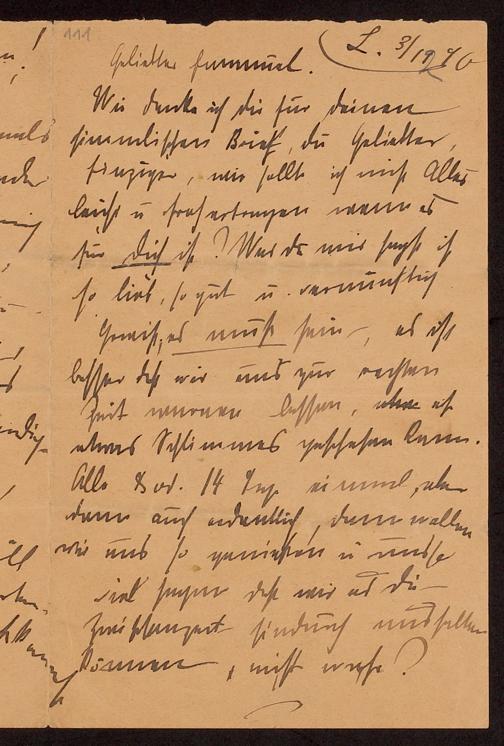 111
L. 3/1970
Geliebter Emmanuel.
Wie danke ich dir für deinen
himmlischen Brief, du Geliebter,
Einziger, wie sollte ich nicht Alles
leicht u froh ertragen wenn es
für Dich ist? Was du mir sagst ist
so lieb, so gut u. vernünftig
Gewiß, es muß sein, es ist
besser daß wir uns zur rechten
Zeit warnen lassen, ehe
etwas Schlimmes geschehen kann.
Alle 8 od. 14 Tage einmal, aber
dann auch ordentlich, dann wollen
wir uns so genießen u uns so
viel sagen daß wir es die
Zwischenzeit hindurch aushalten
können, nicht wahr?